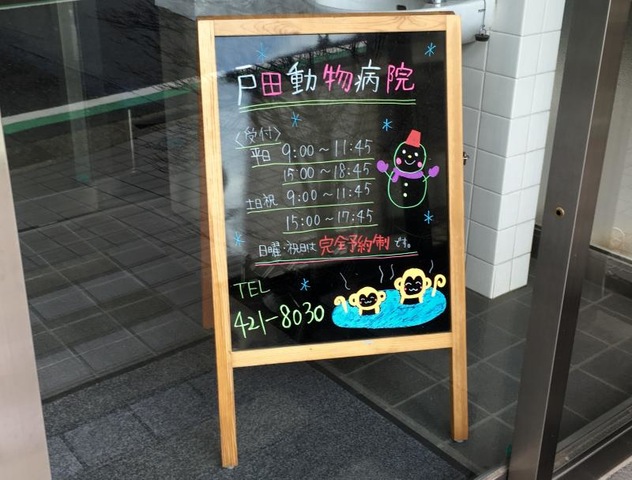 戸田動物病院
〈受付〉
平日 9:00～11:45
15:00～18:45
土日祝 9:00～11:45
15:00～17:45
日曜・祝日は完全予約制です。
TEL
421-8030